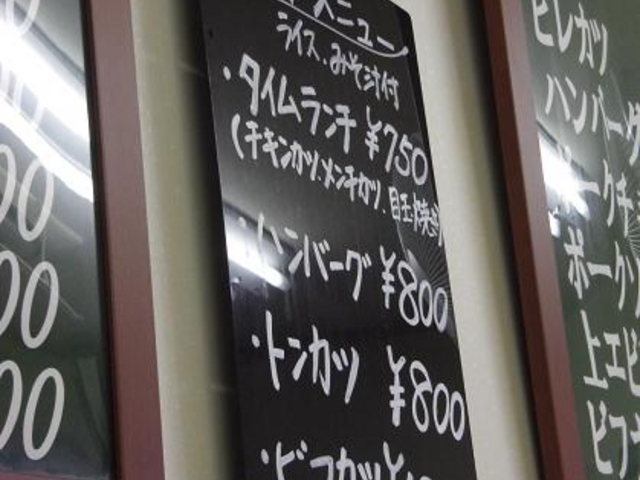 メニュー
ライス、みそ汁付
・タイムランチ ¥750
(チキンカツ、メンチカツ、目玉焼き)
・ハンバーグ ¥800
・トンカツ ¥800
・ビフカツ ¥
ヒレカツ
ハンバーグ
ポークチ
ポークソ
上エビ
ビフ
00
00
00